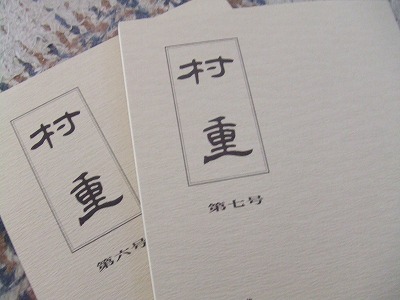 村重
第六号
村重
第七号